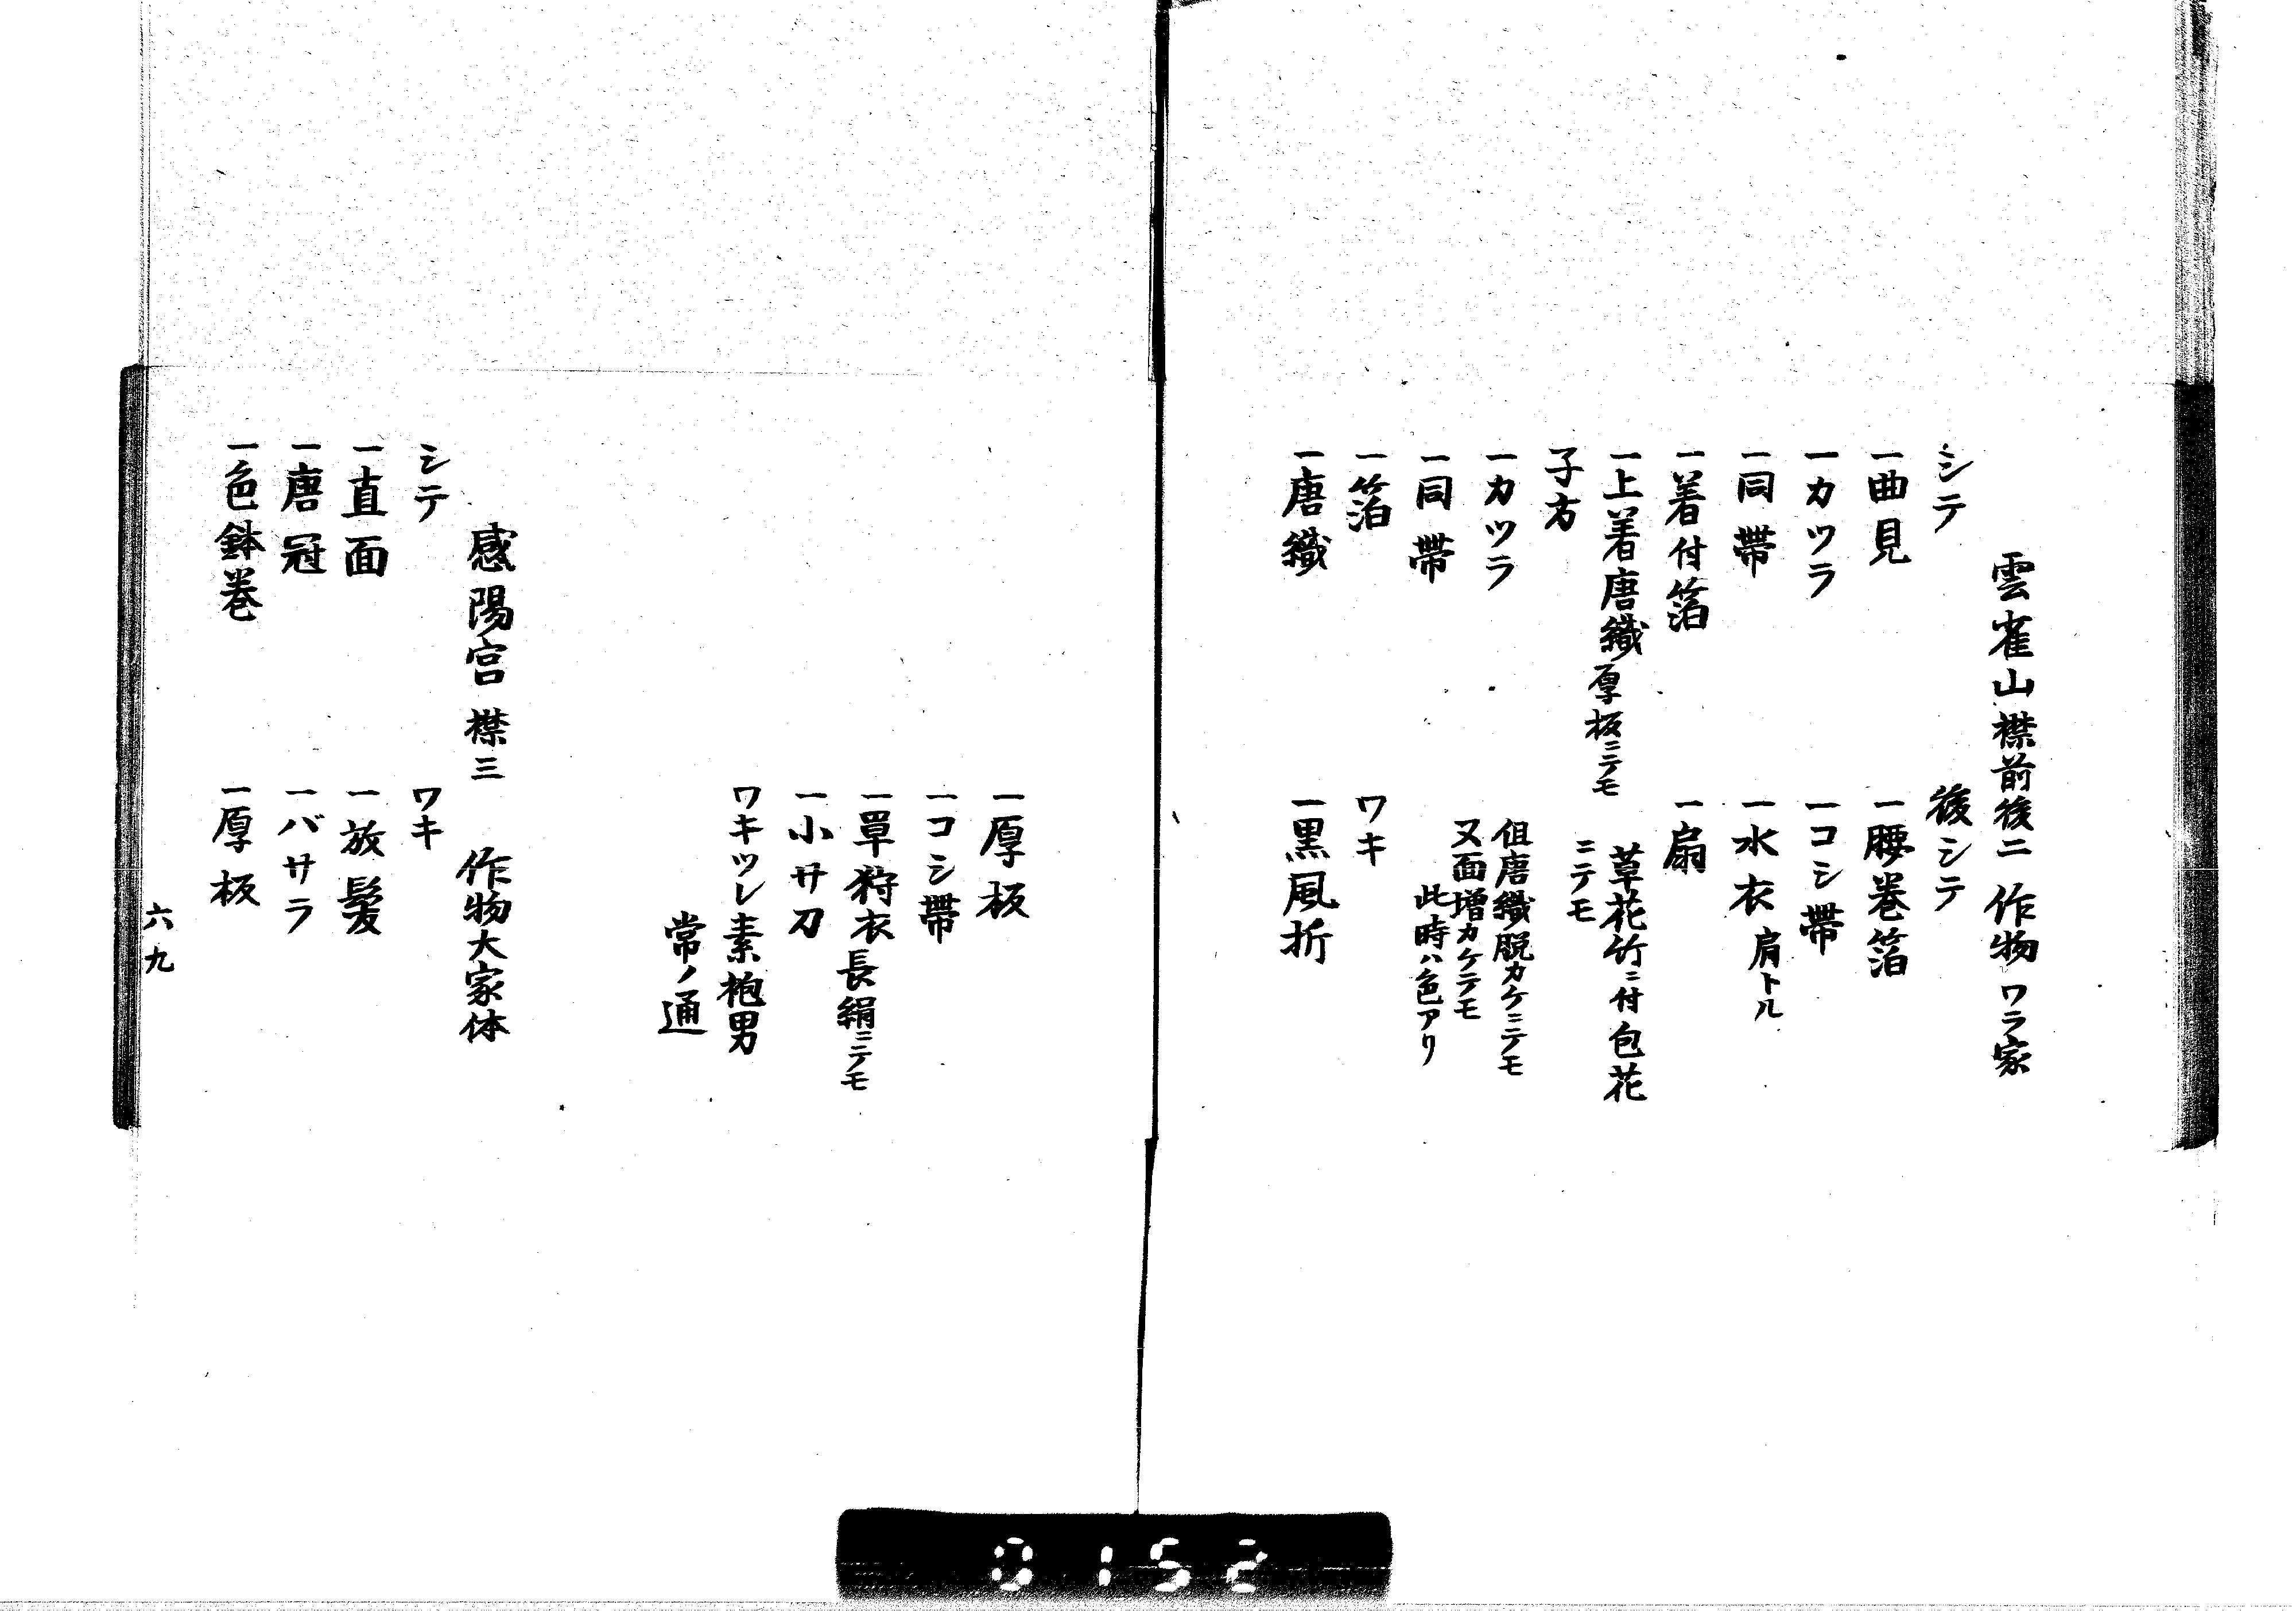 雲雀山 襟前後二 作物 ワラ家
シテ 後シテ
一曲見 一腰巻箔
一カツラ 一コシ帯
一同帯 一水衣 肩トル
一着付箔 一扇
一上着唐織 厚板ニテモ 草花竹ニ付包花
子方 ニテモ
一カツラ 但唐織脱カケニテモ
又面増カケテモ
一同帯 此時ハ色アリ
一箔 ワキ
一唐織 一黒風折
一厚板
一コシ帯
一単狩衣 長絹ニテモ
一小サ刀
ワキツレ素袍男
常ノ通
感陽宮 襟三 作物大家体
シテ ワキ
一直面 一放髪
一唐冠 一バサラ
一色鉢巻 一厚板
六九
0152